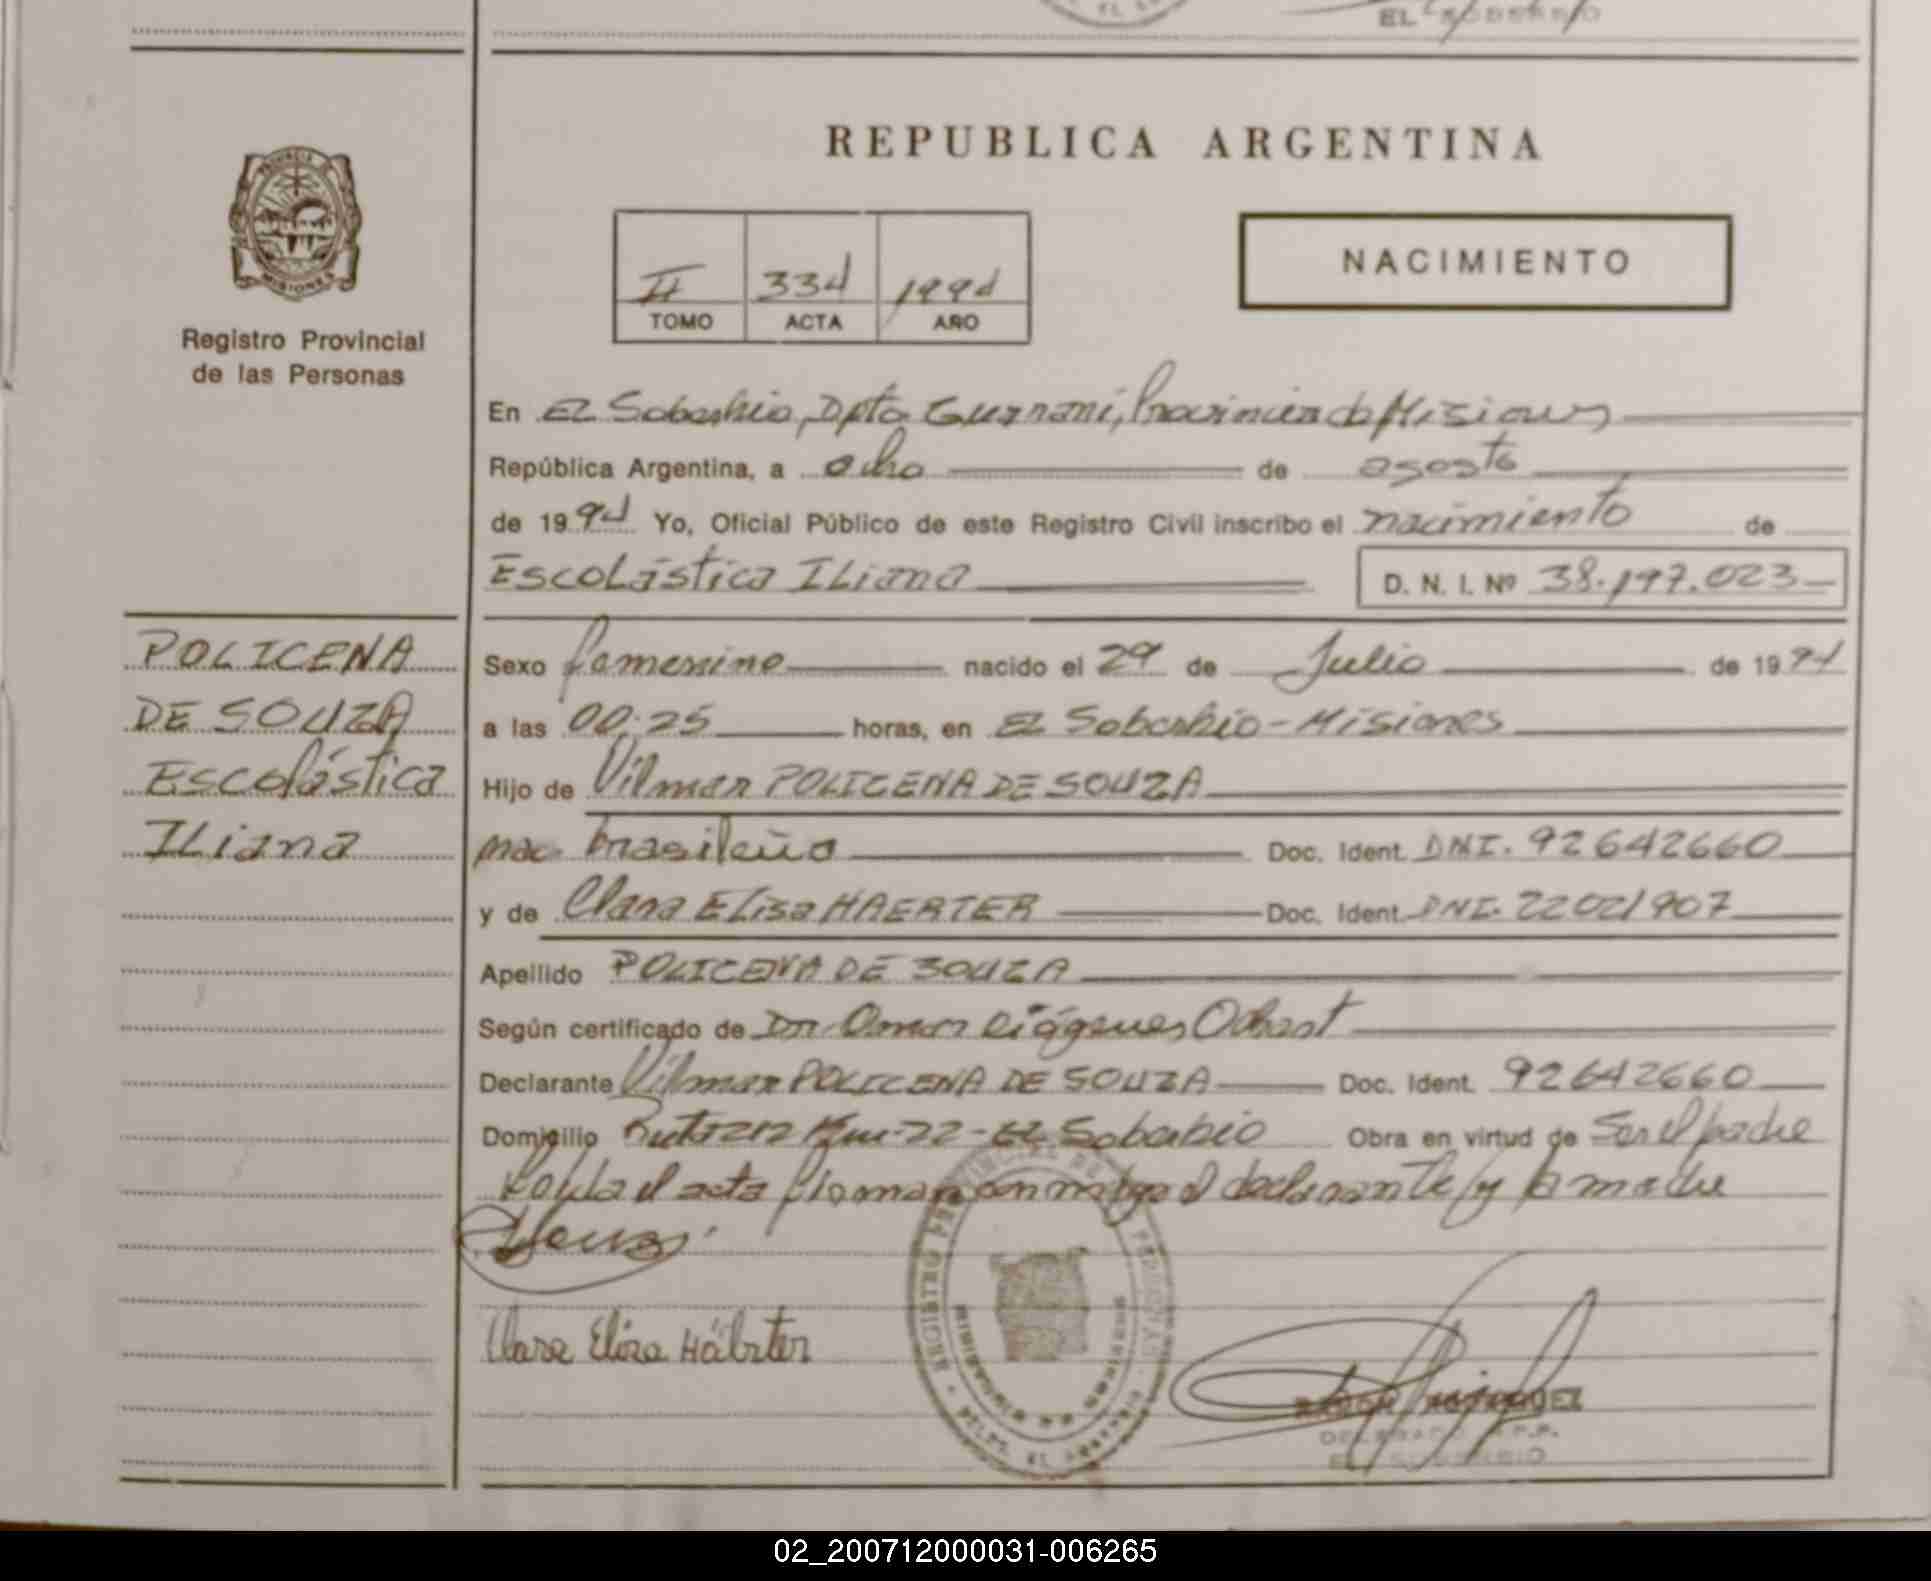 EL SOBERBIO
REPUBLICA ARGENTINA
PROVINCIA DE
MISIONES
Registro Provincial
de las Personas
NACIMIENTO
II 334 1994
TOMO ACTA AÑO
En EL Soberbio, Dpto Guarani, Provincia de Misiones
República Argentina, a ocho de agosto
de 1994 Yo, Oficial Público de este Registro Civil inscribo el nacimiento de
Escolástica Iliana D. N. I. Nº 38.197.023
POLICENA
DE SOUZA
Escolástica
Iliana
Sexo femenino nacido el 29 de Julio de 1994
a las 00:25 horas, en EL Soberbio - Misiones
Hijo de Vilmar POLICENA DE SOUZA
nac. brasileño Doc. Ident. DNI. 92642660
y de Clara Elisa HAERTER Doc. Ident. DNI. 22021907
Apellido POLICENA DE SOUZA
Según certificado de Dr. Omar Diógenes
Declarante Vilmar POLICENA DE SOUZA Doc. Ident. 92642660
Domicilio Ruta 212 Km-22 - EL Soberbio Obra en virtud de Ser el padre
Leída el acta firman conmigo el declarante y la madre
Clara Elisa Härter
REGISTRO PROVINCIAL DE LAS PERSONAS
MINISTERIO DE GOBIERNO
DELEG. EL SOBERBIO
RAMON
DELEGADO R.P.P.
EL SOBERBIO
02_200712000031-006265